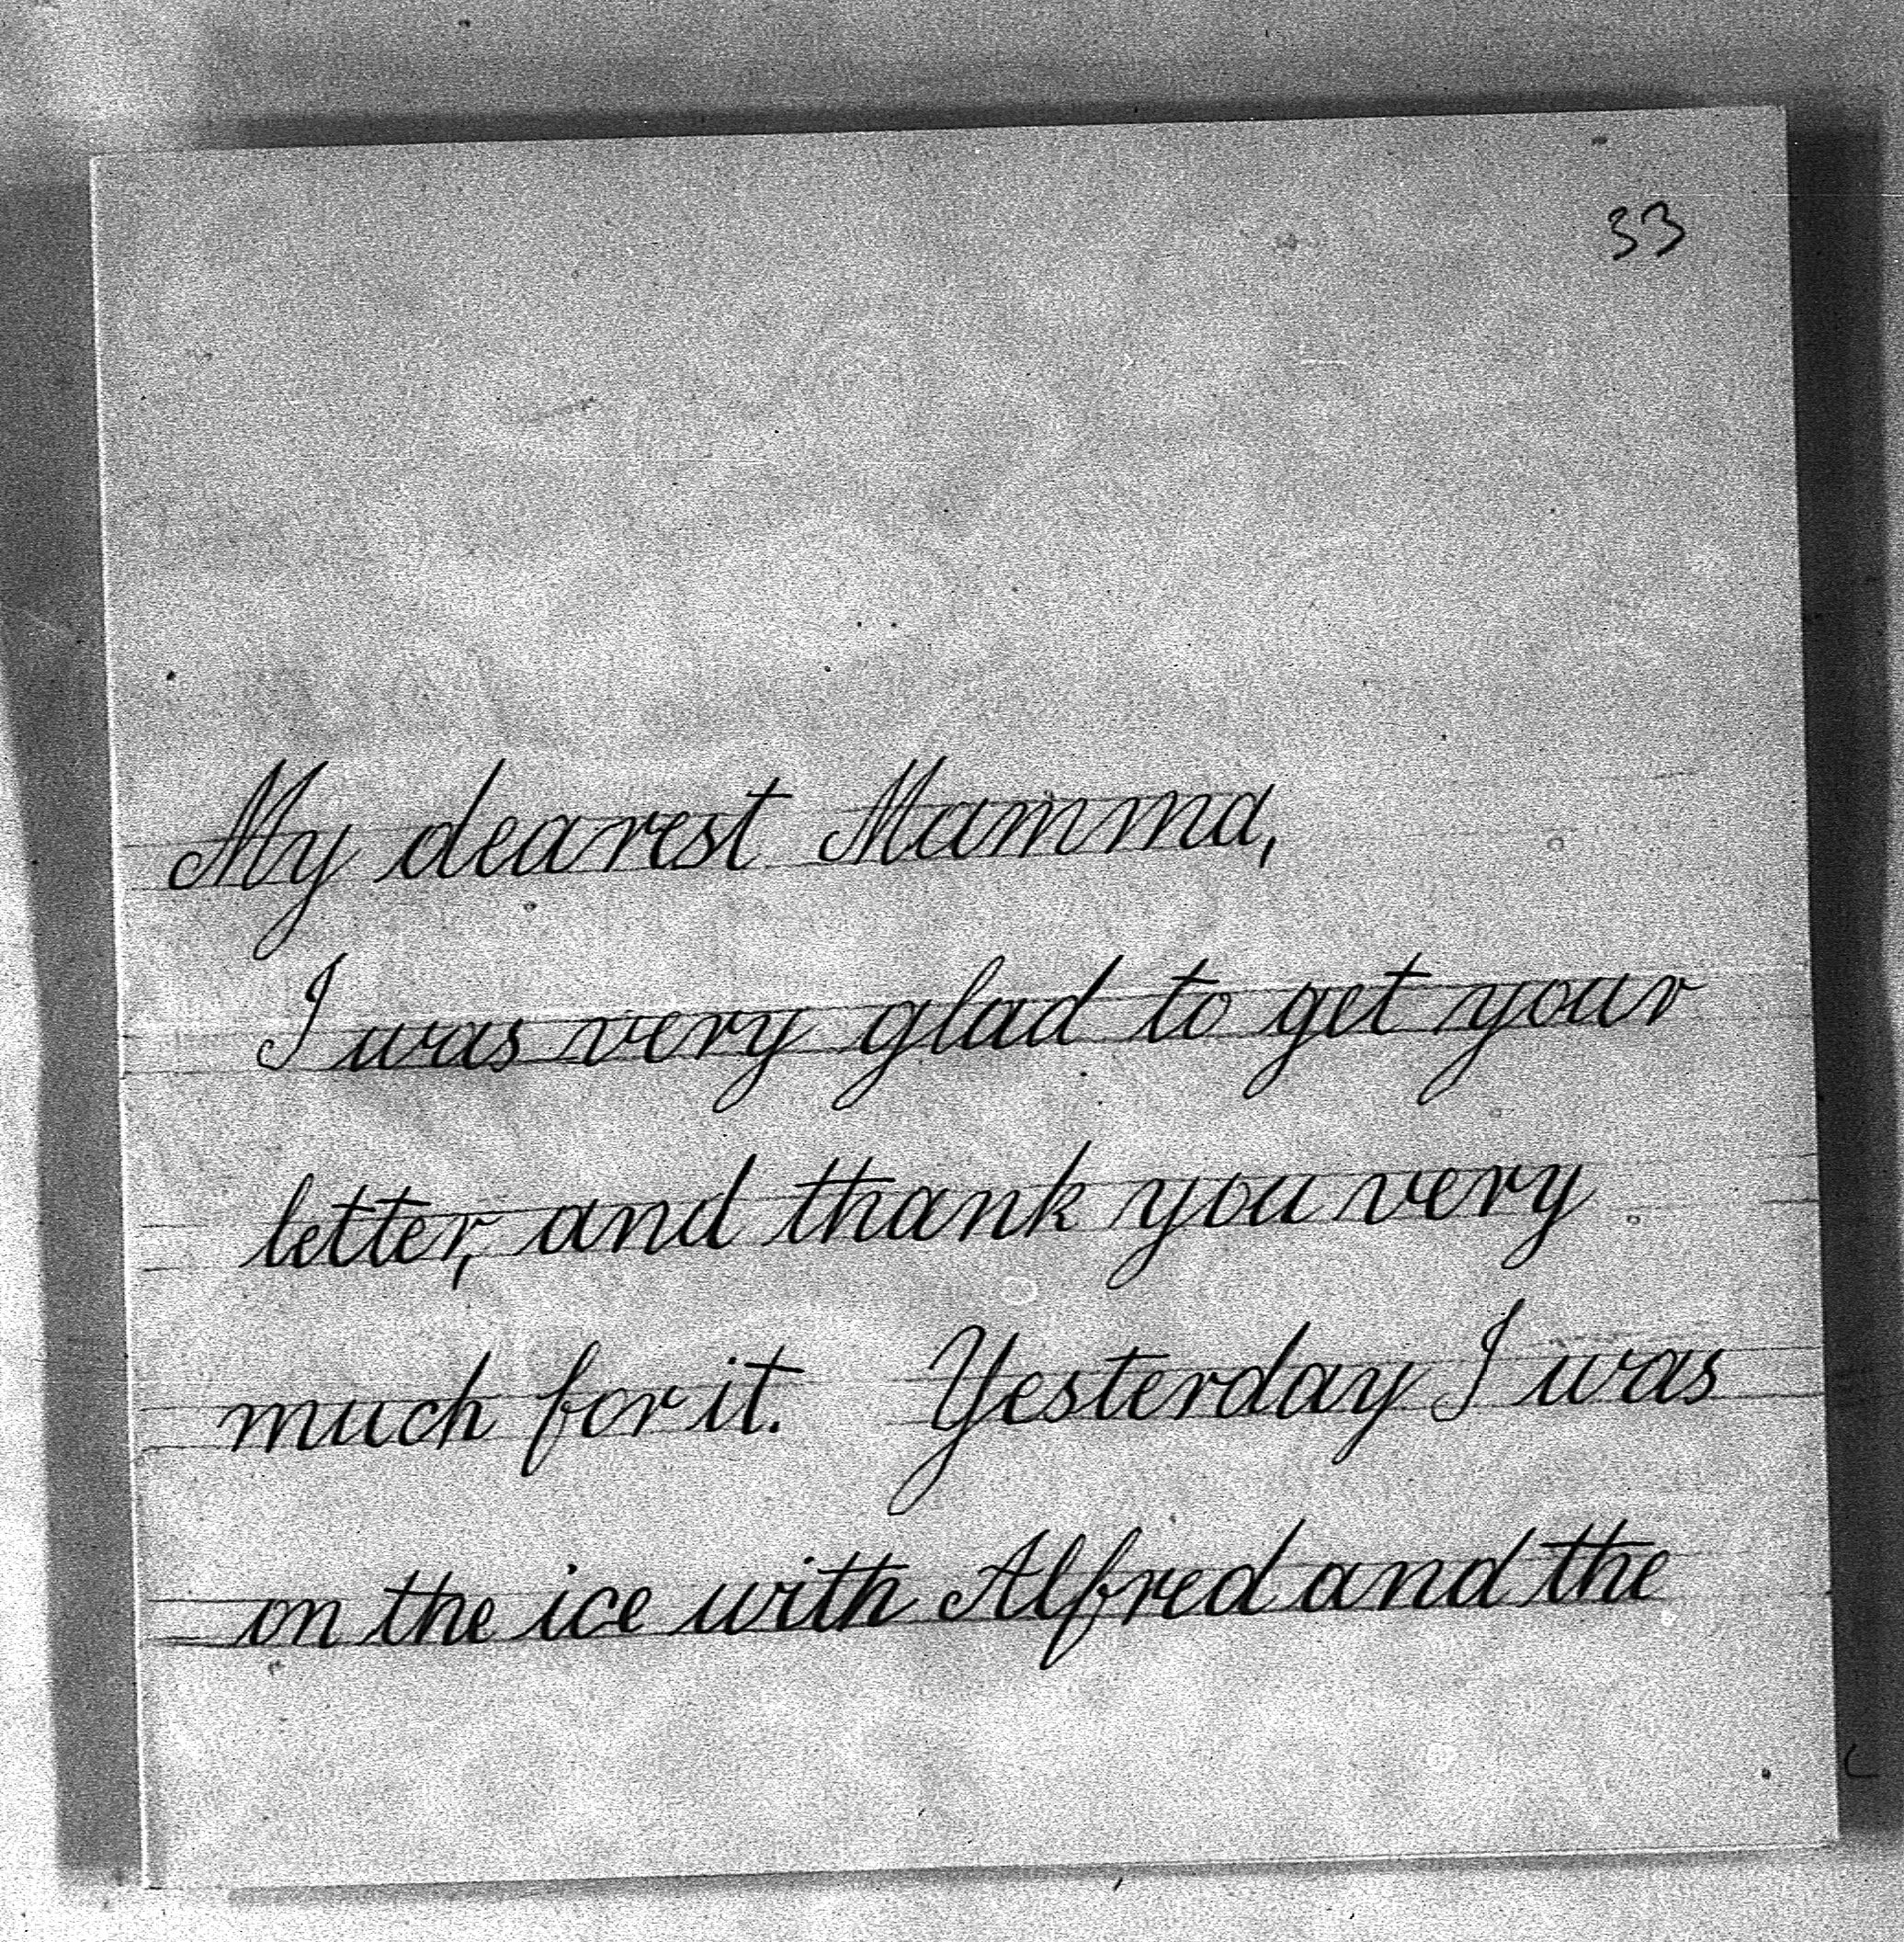 33
My dearest Mamma,
I was very glad to get your
letter, and thank you very
much for it. Yesterday I was
on the ice with Alfred and the